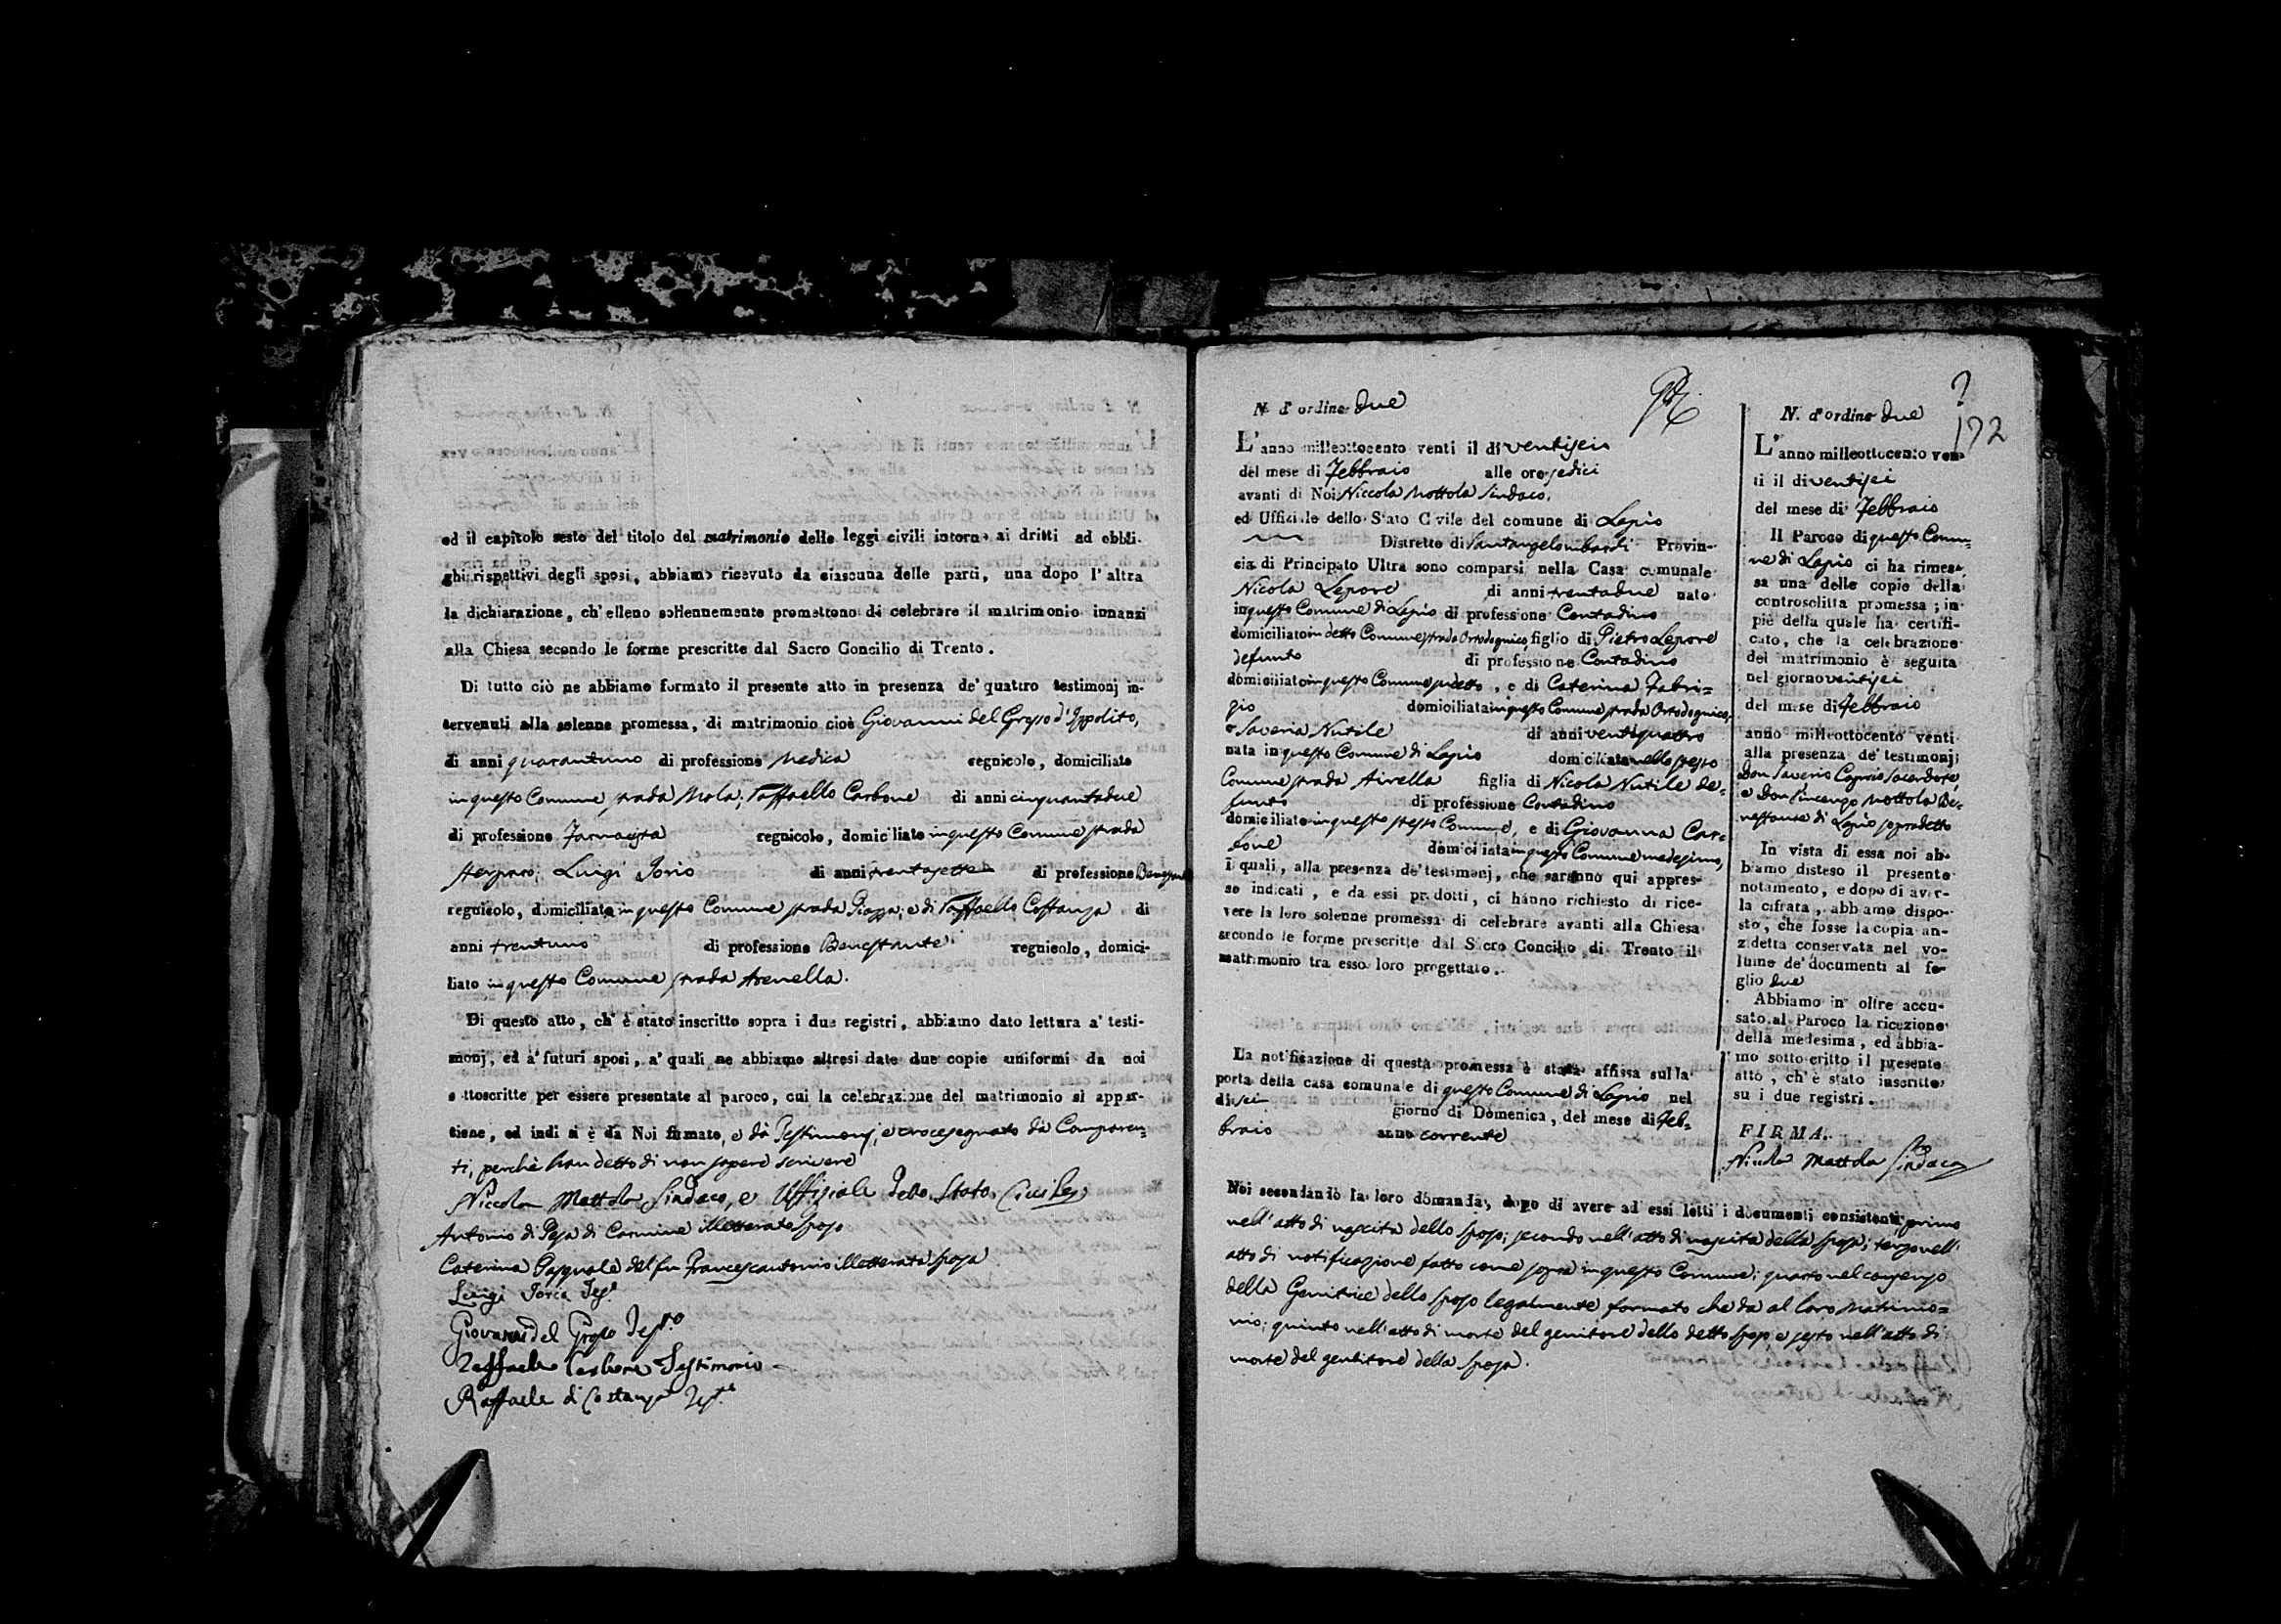 ed il capitolo sesto del titolo del matrimonio delle leggi civili intorno ai dritti ad obbli-
ghi rispettivi degli sposi, abbiamo ricevuto da ciascuna delle parti, una dopo l'altra
la dichiarazione, ch'elleno sollennemente promettono di celebrare il matrimonio innanzi
alla Chiesa secondo le forme prescritte dal Sacro Concilio di Trento.
Di tutto ciò ne abbiamo formato il presente atto in presenza de' quattro testimonj in-
tervenuti alla solenne promessa, di matrimonio cioè Giovanni del Grosso d'Ippolito,
di anni quarantuno di professione Medico regnicolo, domiciliato
in questo Comune strada Mola; Raffaello Carbone di anni cinquantadue
di professione Farmacista regnicolo, domiciliato in questo Comune strada
Luigi Iorio di anni trentasette di professione Benestante
regnicolo, domiciliato in questo Comune strada Piazza; e di Raffaello Costanza di
anni trentuno di professione Benestante regnicolo, domici-
liato in questo Comune strada Arenella.
Di questo atto, ch'è stato inscritto sopra i due registri, abbiamo dato lettura a' testi-
monj, ed a' futuri sposi, a' quali ne abbiamo altresì date due copie uniformi da noi
sottoscritte per essere presentate al paroco, cui la celebrazione del matrimonio si appar-
tiene, ed indi si è da Noi firmato, e da Testimonj, e crocesegnato da Comparen-
ti, perchè han detto di non sapere scrivere
Niccola Mottola Sindaco, e Uffiziale dello Stato Civile
Antonio di Pesa di Carmine illetterato sposo
Caterina Pasquale del fu Francescantonio illetterata sposa
Luigi Iorio Tes.o
Giovanni del Grosso Test.o
Raffaele Carbone Testimonio
Raffaele di Costanzo Test.e
N. d'ordine due
L'anno milleottocento venti il dì ventisei
del mese di Febbraio alle ore sedici
avanti di Noi Niccola Mottola Sindaco,
ed Uffiziale dello Stato Civile del comune di Lapio
Distretto di Santangelombardi Provin-
cia di Principato Ultra sono comparsi nella Casa comunale
Nicola Lepore di anni trentadue nato
in questo Comune di Lapio di professione Contadino
domiciliato in detto Comune strada Ortodognico, figlio di Pietro Lepore
defunto di professione Contadino
domiciliato in questo Comune sudetto, e di Caterina Fabri=
zio domiciliata in questo Comune strada Ortodognico,
e Saveria Nutile di anni ventiquattro
nata in questo Comune di Lapio domiciliata nello stesso
Comune strada Airella figlia di Nicola Nutile de=
funto di professione Contadino
domiciliato in questo stesso Comune, e di Giovanna Car=
bone domiciliata in questo Comune medesimo,
i quali, alla presenza de' testimonj, che saranno qui appres-
so indicati, e da essi prodotti, ci hanno richiesto di rice-
vere la loro solenne promessa di celebrare avanti alla Chiesa
secondo le forme prescritte dal Sacro Concilio di Trento il
matrimonio tra esso loro progettato.
La notificazione di questa promessa è stata affissa sulla
porta della casa comunale di questo Comune di Lapio nel
dì sei giorno di Domenica, del mese di Feb-
braio anno corrente
Noi secondando la loro domanda, dopo di avere ad essi letti i documenti consistenti primo
nell'atto di nascita dello sposo; secondo nell'atto di nascita della sposa; terzo nell'
atto di notificazione fatto come sopra in questo Comune; quarto nel consenso
della Genitrice dello sposo legalmente formato che dà al loro matrimo=
nio; quinto nell'atto di morte del genitore dello detto sposo, e sesto nell'atto di
morte del genitore della sposa.
?
172
N. d'ordine due
L'anno milleottocento ven-
ti il dì ventisei
del mese di Febbraio
Il Paroco di questo Comu=
ne di Lapio ci ha rimes-
sa una delle copie della
controscritta promessa; in
piè della quale ha certifi-
cato, che la celebrazione
del matrimonio è seguita
nel giorno ventisei
del mese di Febbraio
anno milleottocento venti
alla presenza de' testimonj
Don Saverio Caprio Sacerdote,
e Don Vincenzo Mottola Be=
nestante di Lapio sopradetto
In vista di essa noi ab-
biamo disteso il presente
notamento, e dopo di aver-
la cifrata, abbiamo dispo-
sto, che fosse la copia an-
zidetta conservata nel vo-
lume de' documenti al fo-
glio due
Abbiamo in oltre accu-
sato al Paroco la ricezione
della medesima, ed abbia-
mo sottoscritto il presente
atto, ch'è stato inscritto
su i due registri.
FIRMA.
Niccola Mottola Sindaco